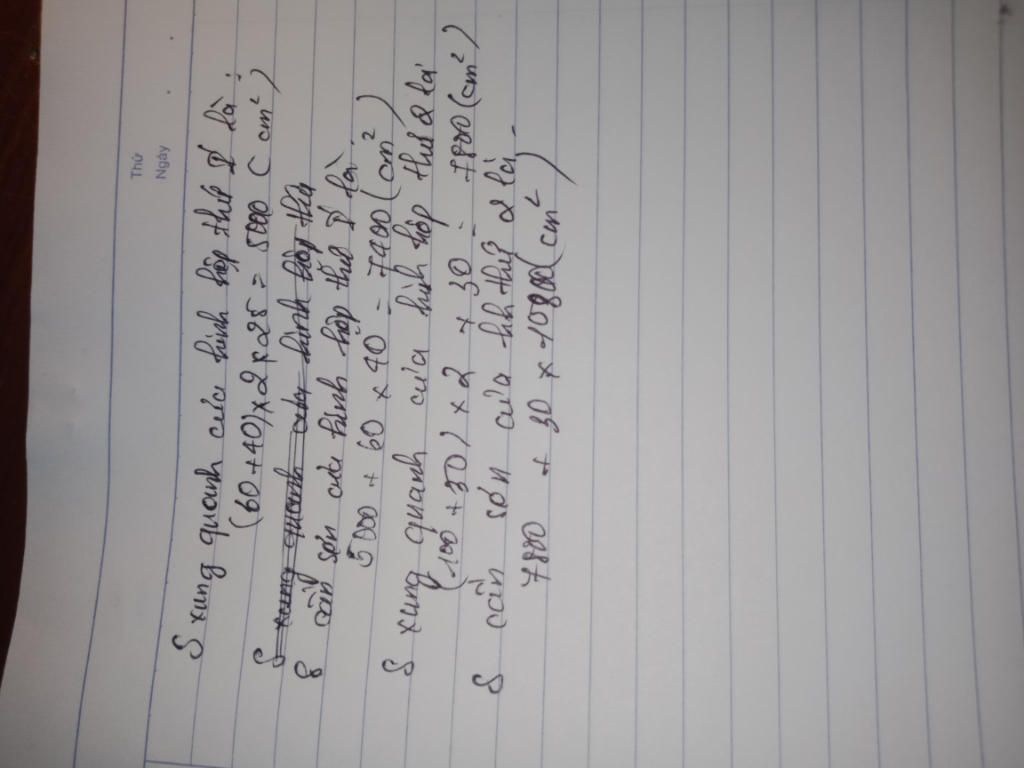 Thứ
Ngày
S xung quanh của hình hộp thứ 1 là:
(60+40)x2x25 = 5000 (cm²)
S xung quanh của hình hộp thứ
S cần sơn của hình hộp thứ 1 là:
5000 + 60 x 40 = 7400 (cm²)
S xung quanh của hình hộp thứ 2 là
(100+30) x 2 x 30 = 7800 (cm²)
S cần sơn của hình thứ 2 là
7800 + 30 x 10800 (cm²)